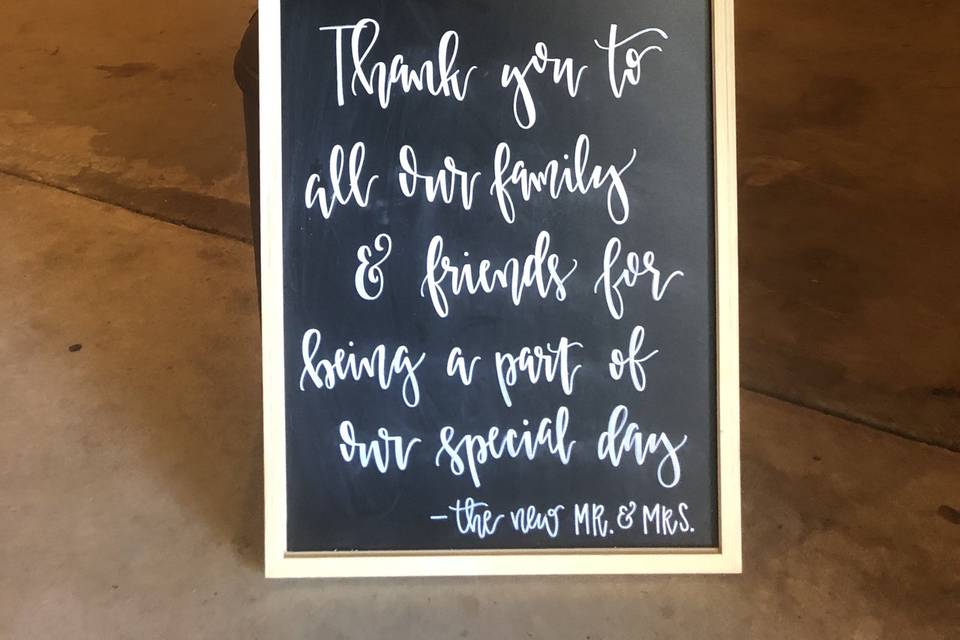 Thank you to
all our family
& friends for
being a part of
our special day
- the new MR. & MRS.